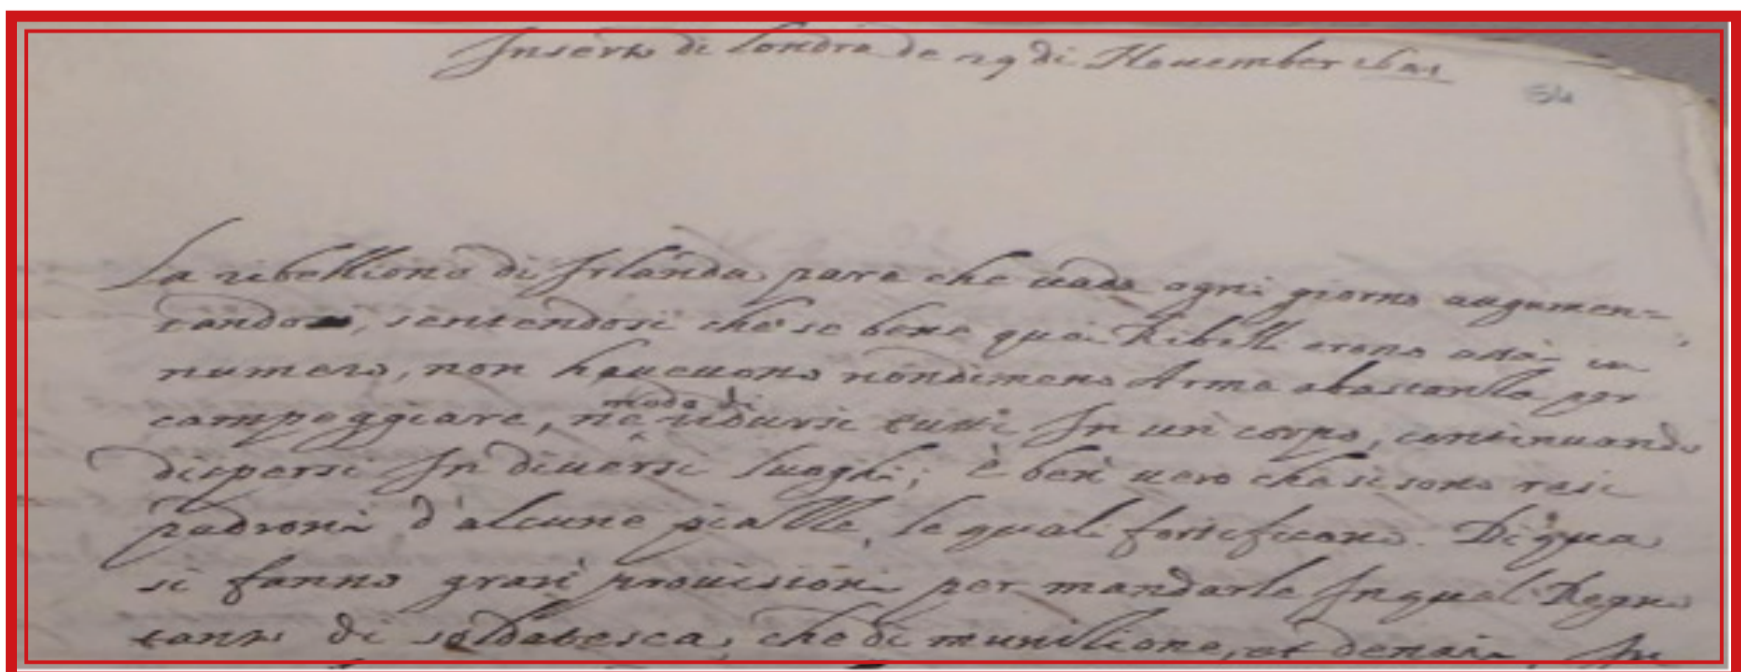 Inserto di Londra de 29 di Nouember 1641
54
La ribellione di Irlanda pare che uada ogni giorno augumen=
tandosi, sentendosi che se bene quei Ribelli erano assai in
numero, non haueuano nondimeno Arme abastanza per
campeggiare, ne modo di ridursi tutti In un corpo, continuando
dispersi In diuersi luoghi; è ben uero che si sono resi
padroni d'alcune piazze, le quali fortificano. Di qua
si fanno gran prouisioni per mandarle In quel Regno
tanto di soldatesca, che di munitione, et denari. In